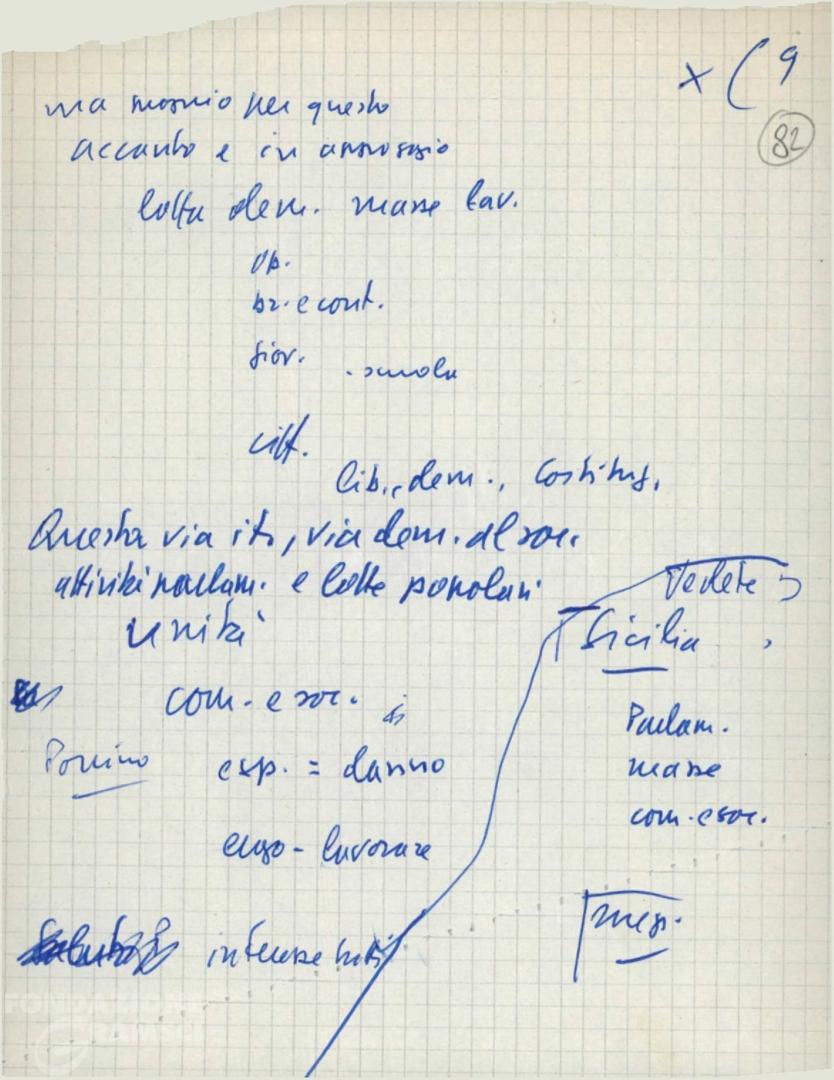 x ( 9
82
ma proprio per questo
accanto e in appoggio
lotta dem. masse lav.
op.
br. e cont.
giov. . scuola
citt.
lib., dem., Costituz.
Questa via it., via dem. al soc.
attività parlam. e lotte popolari
unità
Vedete
Sicilia
com. e soc.
Parlam.
masse
com. e soc.
esp. = danno
ergo - lavorare
interesse tutti
FONDAZIONE
GRAMSCI